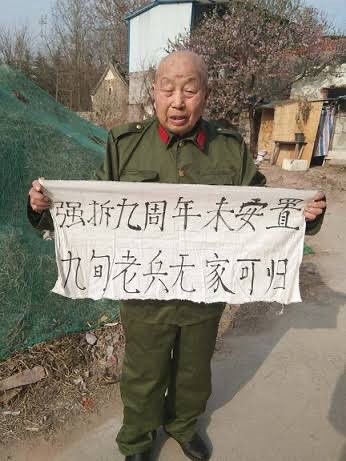 强拆九周年未安置
九旬老兵无家可归